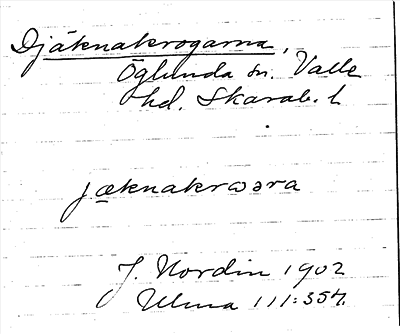 Djäknakrogarna,
Öglunda sn. Valle
hd. Skarab. l
jæknakrωəra
J. Nordin 1902
Ulma 111:357.